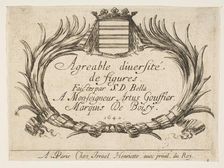 Agreable diversité
de figures
Faictes par S. D. Bella
A Monseigneur Artus Gouffier
Marquis De Boisy.
1642
A Paris Chez Israel Henriette avec privil. du Roy.